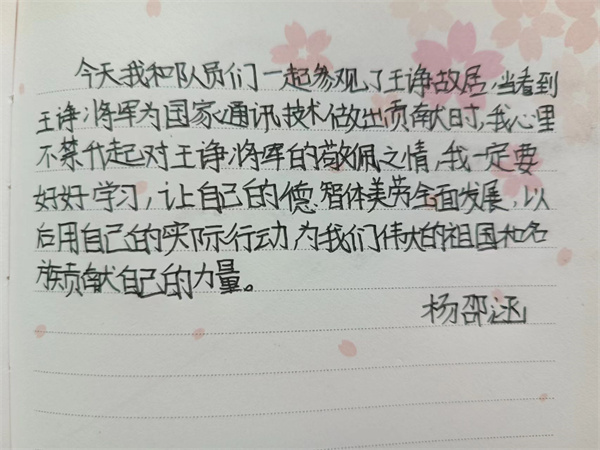 今天我和队员们一起参观了王诤故居,当看到
王诤将军为国家通讯技术做出贡献时,我心里
不禁升起对王诤将军的敬佩之情,我一定要
好好学习,让自己的德智体美劳全面发展,以
后用自己的实际行动,为我们伟大的祖国和名
族贡献自己的力量。
杨邵涵